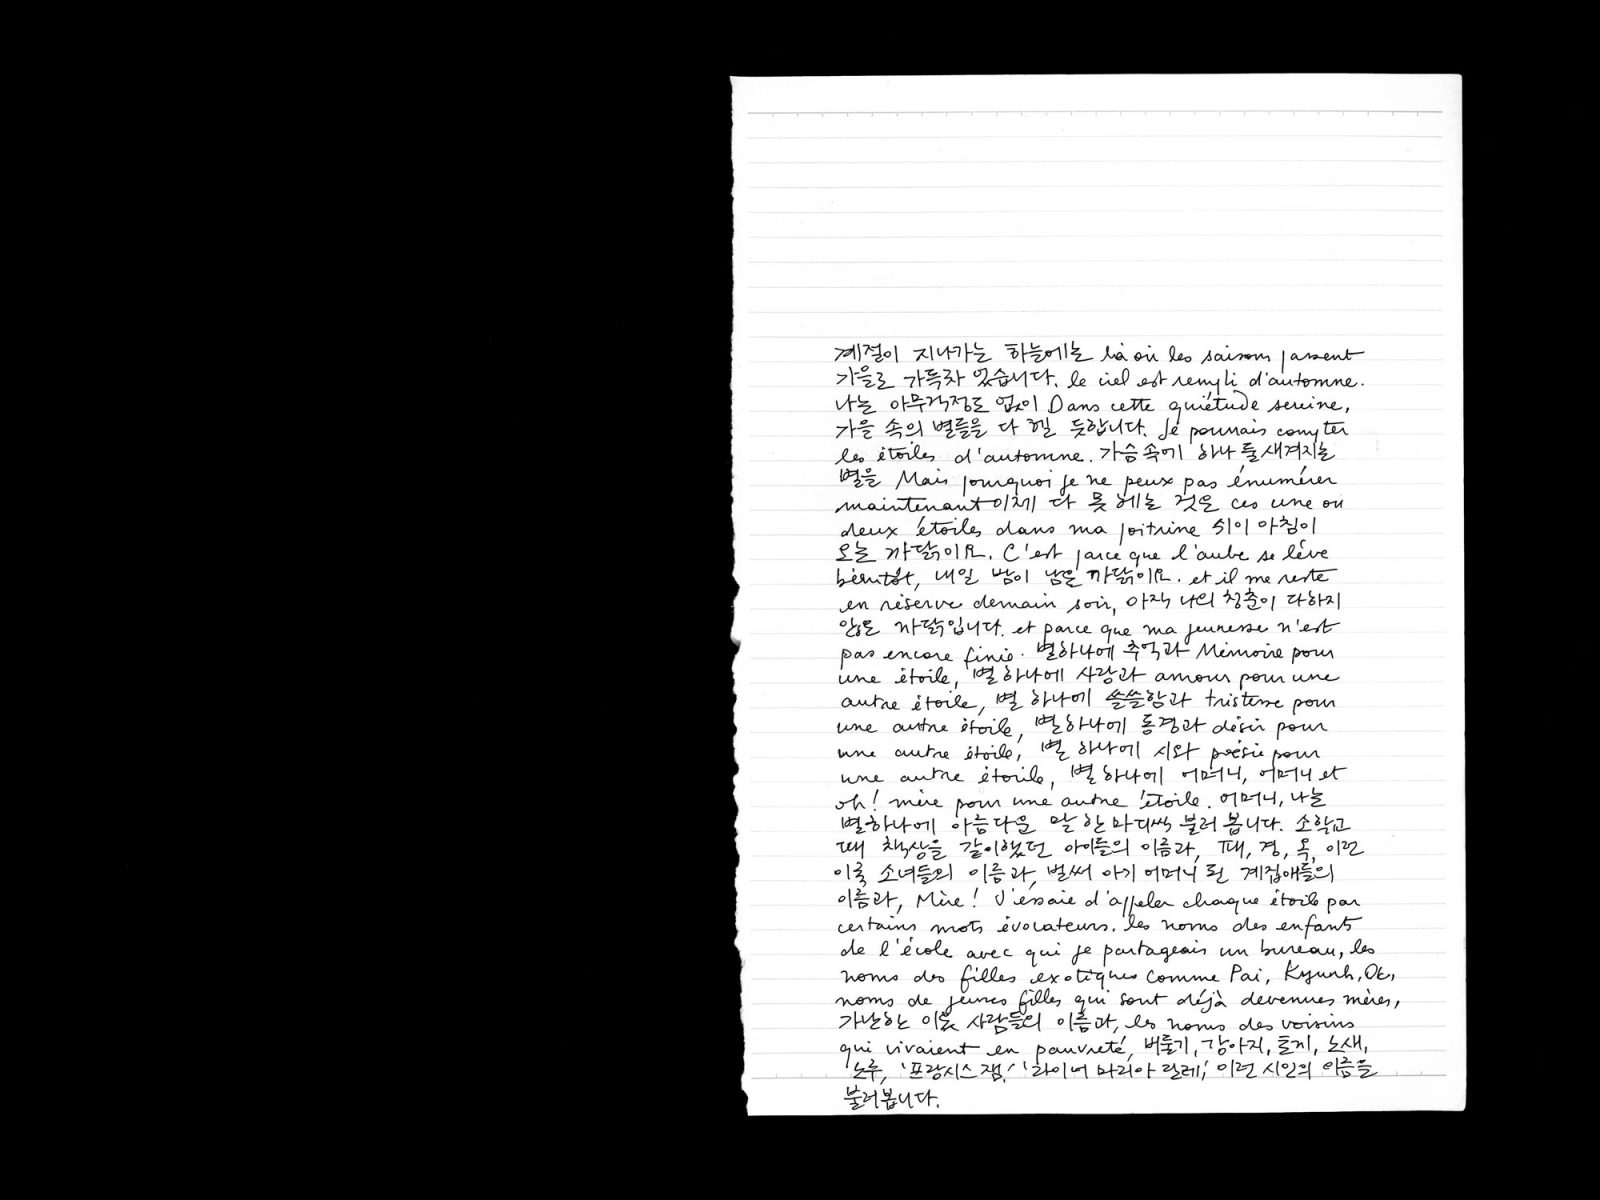 계절이 지나가는 하늘에는 là où les saisons passent
가을로 가득차 있습니다. le ciel est rempli d'automne.
나는 아무걱정도 없이 Dans cette quiétude sereine,
가을 속의 별들을 다 헬 듯합니다. Je pourrais compter
les étoiles d'automne. 가슴속에 하나 둘 새겨지는
별을 Mais pourquoi je ne peux pas énumérer
maintenant 이제 다 못 헤는 것은 ces une ou
deux étoiles dans ma poitrine 쉬이 아침이
오는 까닭이요. C'est parce que l'aube se lève
bientôt, 내일 밤이 남은 까닭이요. et il me reste
en réserve demain soir, 아직 나의 청춘이 다하지
않은 까닭입니다. et parce que ma jeunesse n'est
pas encore finie. 별하나에 추억과 Mémoire pour
une étoile, 별 하나에 사랑과 amour pour une
autre étoile, 별 하나에 쓸쓸함과 tristesse pour
une autre étoile, 별하나에 동경과 désir pour
une autre étoile, 별 하나에 시와 poésie pour
une autre étoile, 별 하나에 어머니, 어머니 et
oh! mère pour une autre étoile. 어머니, 나는
별하나에 아름다운 말 한마디씩 불러 봅니다. 소학교
때 책상을 같이했던 아이들의 이름과, 패, 경, 옥, 이런
이국 소녀들의 이름과, 벌써 아기 어머니 된 계집애들의
이름과, Mère! J'essaie d'appeler chaque étoile par
certains mots évocateurs. les noms des enfants
de l'école avec qui je partageais un bureau, les
noms des filles exotiques comme Pai, Kyunh, Ok,
noms de jeunes filles qui sont déjà devenues mères,
가난한 이웃 사람들의 이름과, les noms des voisins
qui vivaient en pauvreté, 비둘기, 강아지, 토끼, 노새,
노루, '프랑시스 잼,' '라이너 마리아 릴케,' 이런 시인의 이름을
불러봅니다.